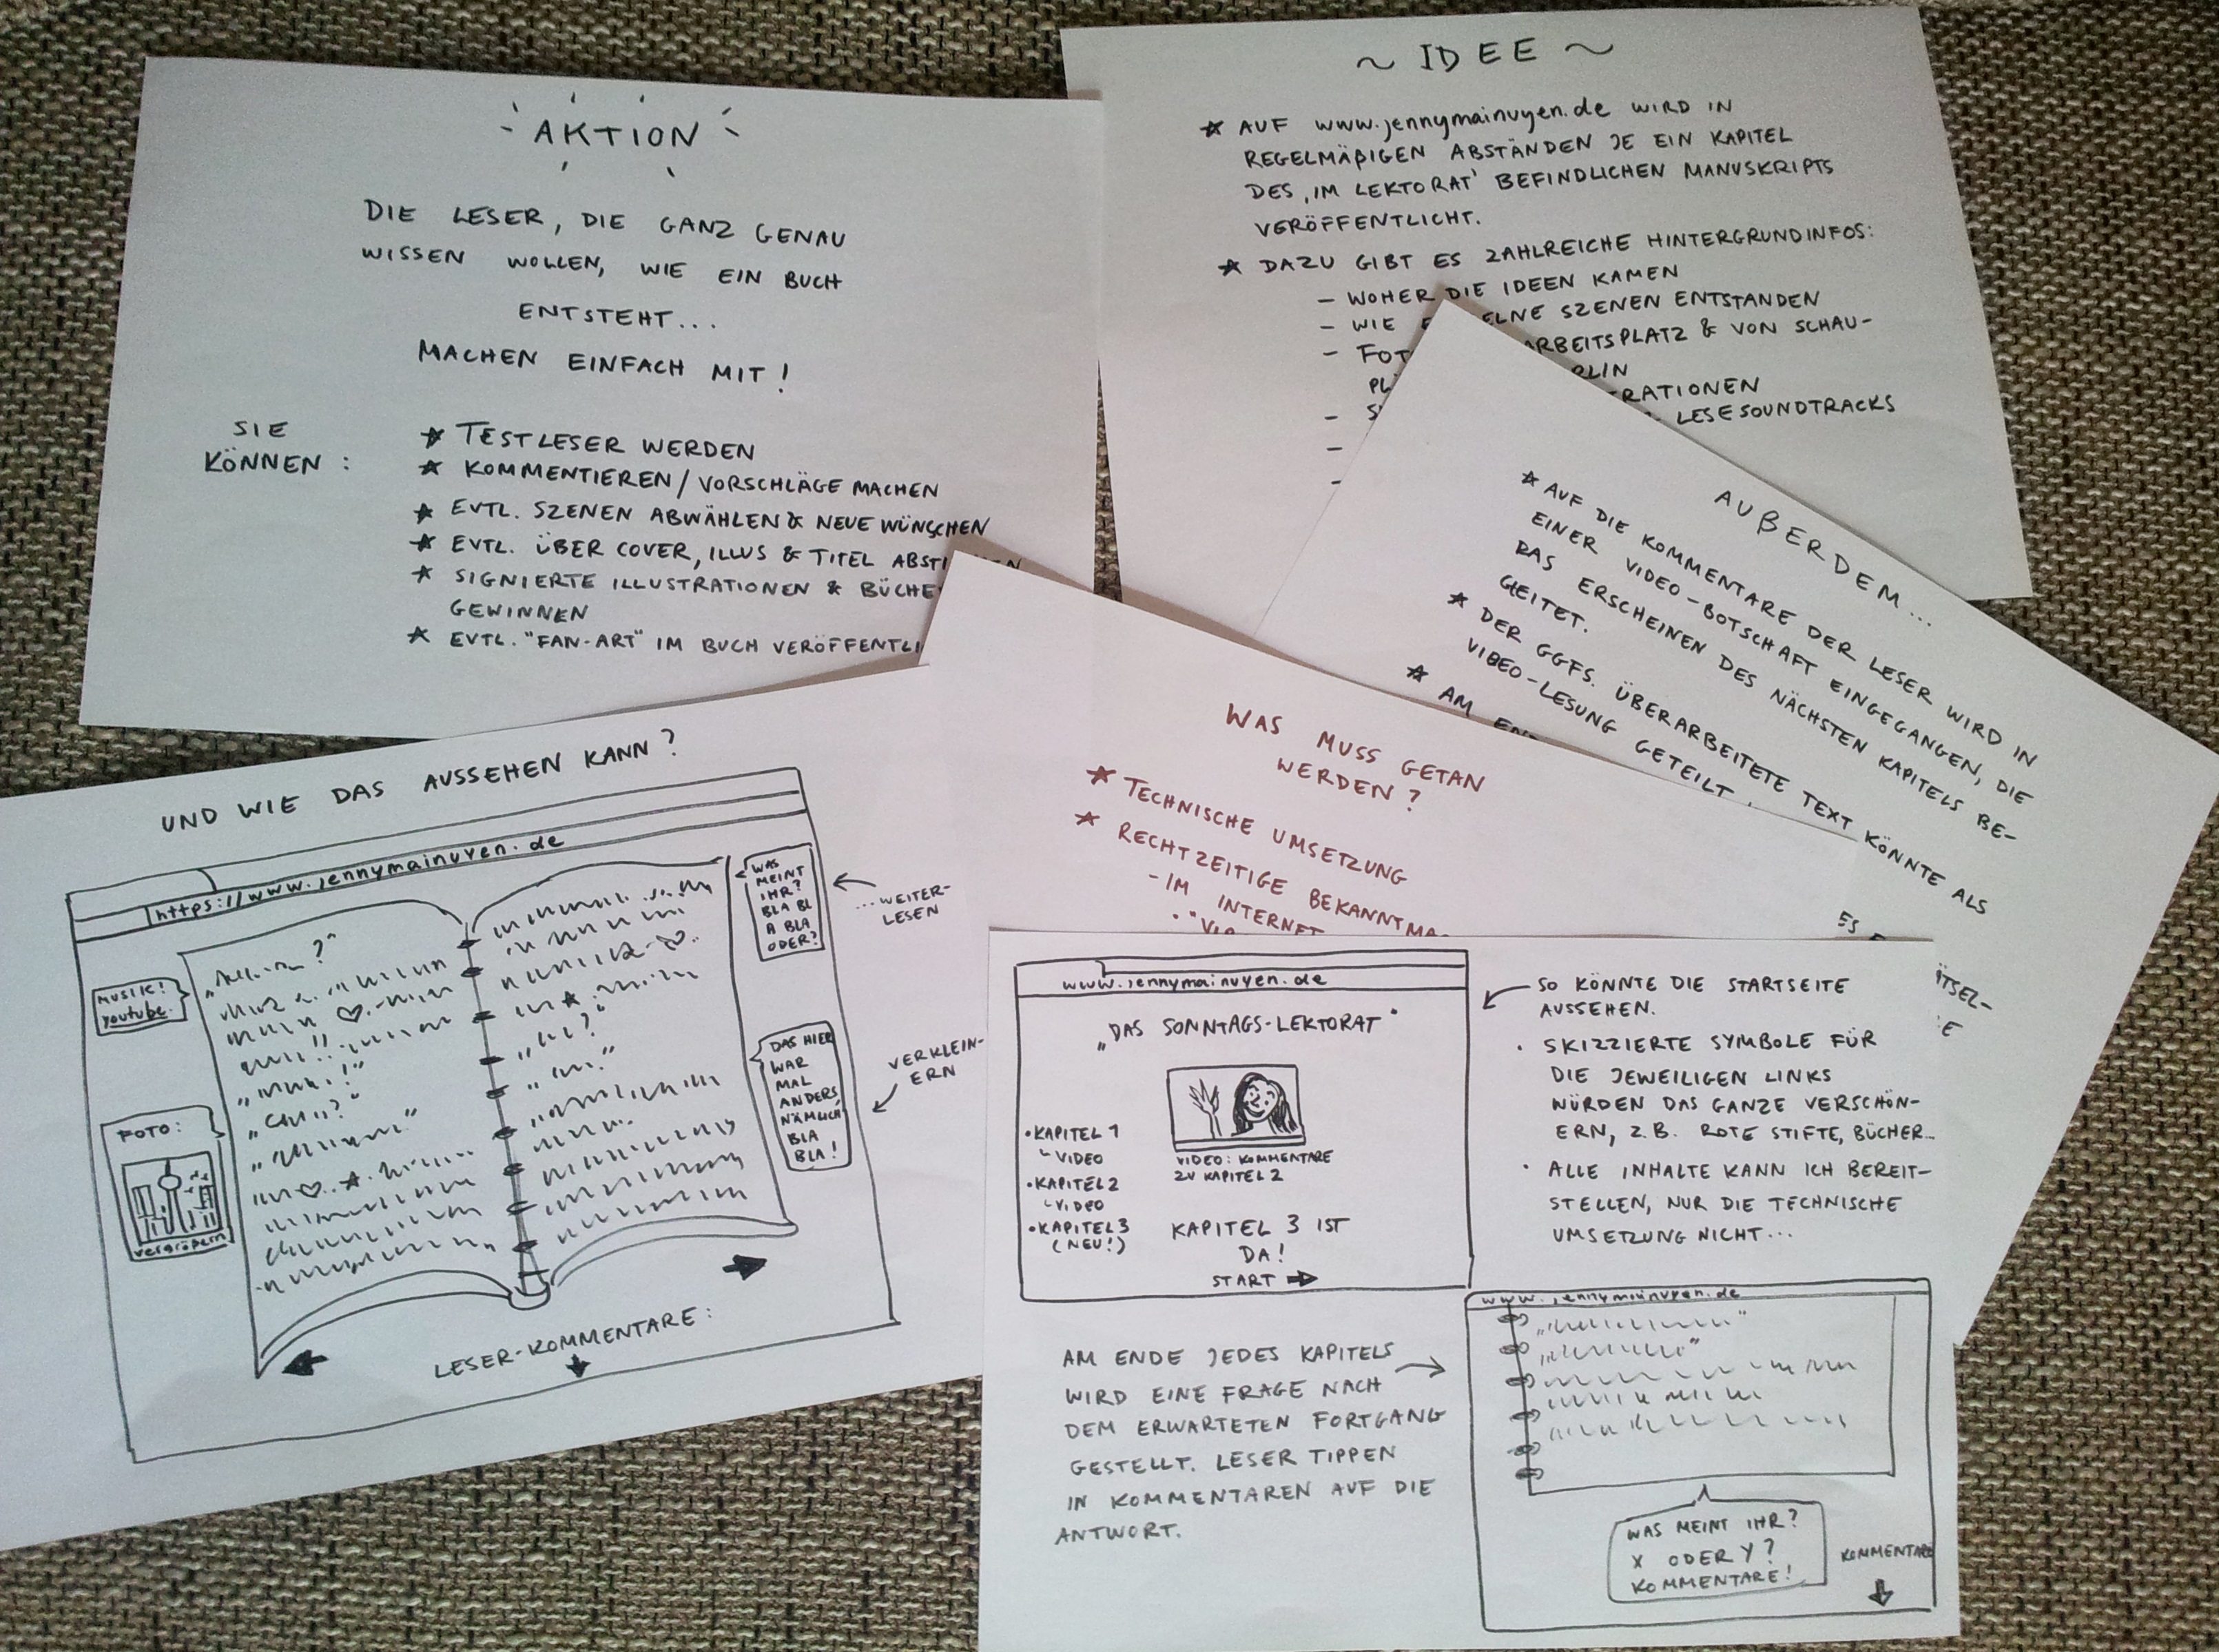 AKTION
DIE LESER, DIE GANZ GENAU
WISSEN WOLLEN, WIE EIN BUCH
ENTSTEHT...
MACHEN EINFACH MIT!
SIE
KÖNNEN:
★ TESTLESER WERDEN
★ KOMMENTIEREN/VORSCHLÄGE MACHEN
★ EVTL. SZENEN ABWÄHLEN & NEUE WÜNSCHEN
★ EVTL. ÜBER COVER, ILLUS & TITEL
★ SIGNIERTE ILLUSTRATIONEN &
GEWINNEN
★ EVTL. "FAN-ART" IM BUCH
~ IDEE ~
★ AUF www.jennymainuyen.de WIRD IN
REGELMÄßIGEN ABSTÄNDEN JE EIN KAPITEL
DES ‚IM LEKTORAT' BEFINDLICHEN MANUSKRIPTS
VERÖFFENTLICHT.
★ DAZU GIBT ES ZAHLREICHE HINTERGRUNDINFOS:
- WOHER DIE IDEEN KAMEN
- WIE SZENEN ENTSTANDEN
- & VON SCHAU-
LESESOUNDTRACKS
AUßERDEM...
★ AUF DIE KOMMENTARE DER LESER WIRD IN
EINER VIDEO-BOTSCHAFT EINGEGANGEN, DIE
DAS ERSCHEINEN DES NÄCHSTEN KAPITELS BE-
GLEITET.
★ DER GGFS. ÜBERARBEITETE TEXT KÖNNTE ALS
VIDEO-LESUNG GETEILT
★ AM
ES
WAS MUSS GETAN
WERDEN?
★ TECHNISCHE UMSETZUNG
★ RECHTZEITIGE
- IM INTERNET
UND WIE DAS AUSSEHEN KANN?
https://www.jennymainuyen.de
MUSIK!
youtube.
FOTO:
vergrößern
WAS
MEINT
IHR?
BLA BL
A BLA
ODER?
...WEITER-
LESEN
DAS HIER
WAR
MAL
ANDERS,
NÄMLICH
BLA
BLA!
VERKLEIN-
ERN
LESER-KOMMENTARE:
www.jennymainuyen.de
„DAS SONNTAGS-LEKTORAT"
• KAPITEL 1
VIDEO
• KAPITEL 2
VIDEO
• KAPITEL 3
(NEU!)
VIDEO: KOMMENTARE
ZU KAPITEL 2
KAPITEL 3 IST
DA!
START
SO KÖNNTE DIE STARTSEITE
AUSSEHEN.
• SKIZZIERTE SYMBOLE FÜR
DIE JEWEILIGEN LINKS
WÜRDEN DAS GANZE VERSCHÖN-
ERN, Z.B. ROTE STIFTE, BÜCHER...
• ALLE INHALTE KANN ICH BEREIT-
STELLEN, NUR DIE TECHNISCHE
UMSETZUNG NICHT...
AM ENDE JEDES KAPITELS
WIRD EINE FRAGE NACH
DEM ERWARTETEN FORTGANG
GESTELLT. LESER TIPPEN
IN KOMMENTAREN AUF DIE
ANTWORT.
www.jennymainuyen.de
WAS MEINT IHR?
X ODER Y?
KOMMENTARE!
KOMMENTARE